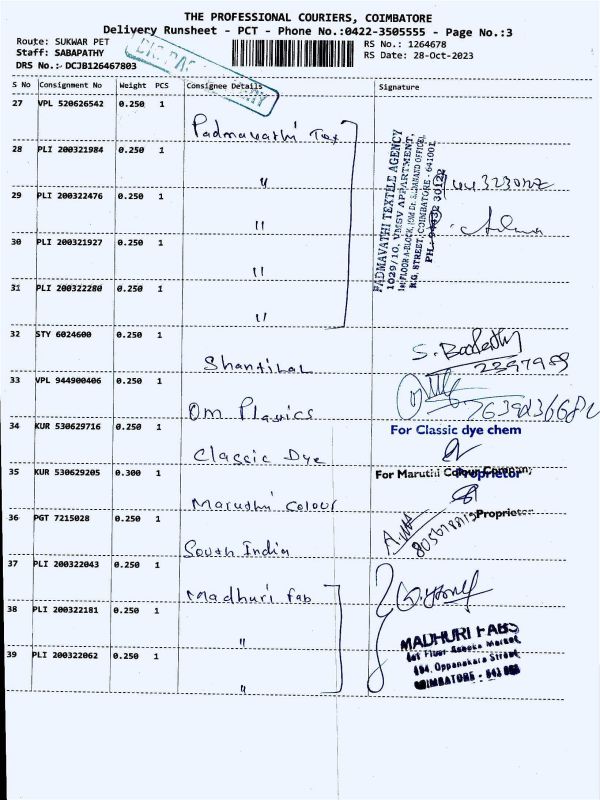 THE PROFESSIONAL COURIERS, COIMBATORE
Delivery Runsheet - PCT - Phone No.:0422-3505555 - Page No.:3
Route: SUKWAR PET
RS No.: 1264678
Staff: SABAPATHY
RS Date: 28-Oct-2023
DRS No.:- DCJB126467803
S No Consignment No Weight PCS Consignee Details Signature
27 VPL 520626542 0.250 1
Padmavathi Tex
28 PLI 200321984 0.250 1
"
29 PLI 200322476 0.250 1
"
30 PLI 200321927 0.250 1
"
31 PLI 200322280 0.250 1
"
PADMAVATHI TEXTILE AGENCY
1029/10, VMSV APPARTMENT,
R.G. STREET, COIMBATORE - 641001
32 STY 6024600 0.250 1
Shantilal
33 VPL 944900406 0.250 1
Om Plasics
34 KUR 530629716 0.250 1
For Classic dye chem
Classic Dye
Proprietor
35 KUR 530629205 0.300 1
For Maruthi Colour Company
Maruthi Colour
Proprietor
36 PGT 7215028 0.250 1
South India
37 PLI 200322043 0.250 1
Madhuri Fab
38 PLI 200322181 0.250 1
"
39 PLI 200322062 0.250 1
"
MADHURI FABS
1st Floor Asoka Market,
494, Oppanakara Street,
COIMBATORE - 641 001